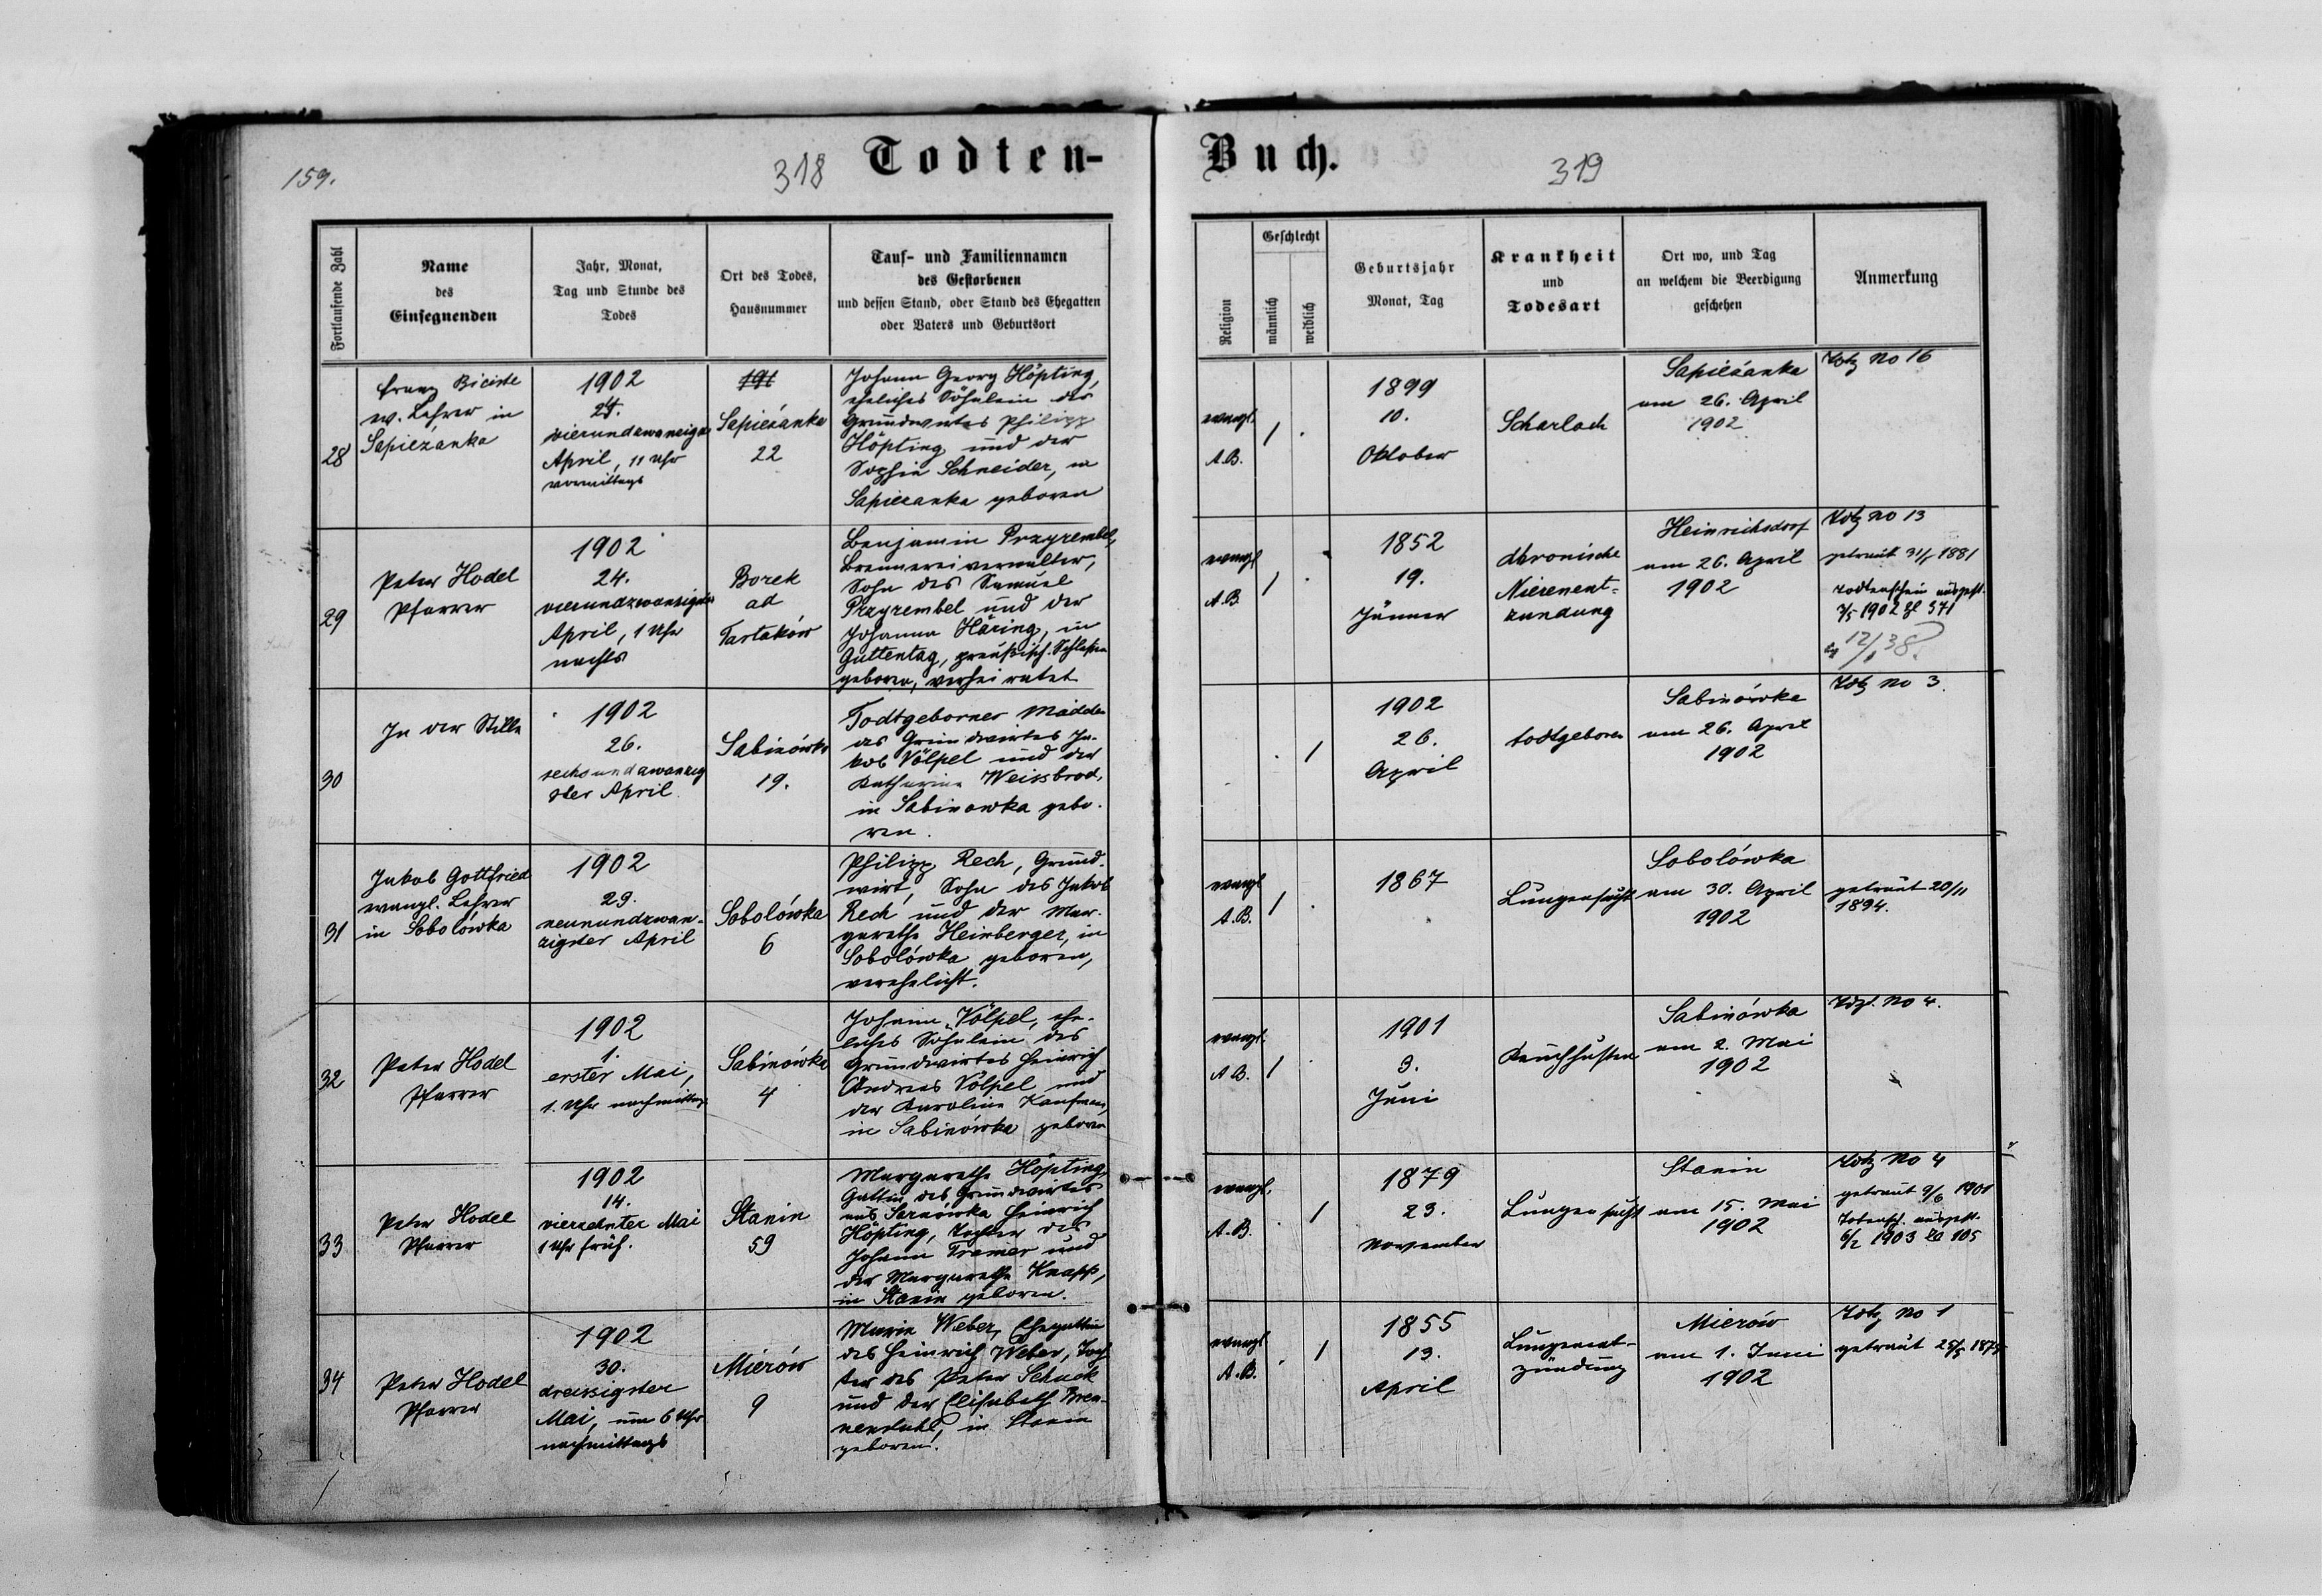 159.
318
Todten-
Fortlaufende Zahl
Name
des
Einsegnenden
Jahr, Monat,
Tag und Stunde des
Todes
Ort des Todes,
Hausnummer
Tauf- und Familiennamen
des Gestorbenen
und dessen Stand, oder Stand des Ehegatten
oder Vaters und Geburtsort
28
Franz
ev. Lehrer in
Sapieżanka
1902
24.
vierundzwanzigster
April, 11 Uhr
vormittags
Sapieżanka
22
Johann Georg Höpting,
eheliches Söhnlein des
Grundwirtes Philipp
Höpting und der
Sophie Schneider, in
Sapiezanka geboren
29
Peter Hodel
Pfarrer
1902
24.
vierundzwanzigster
April, 1 Uhr
nachts
Borek
ad
Tartaków
Benjamin Przyrembel,
Brennereiverwalter,
Sohn des Samuel
Przyrembel und der
Johanna Häring, in
Guttentag, preußisch. Schlesien
geboren, verheiratet
30
In der Stille
1902
26.
sechsundzwanzig
ster April
Sabinówka
19.
Todtgebornes Mädchen
des Grundwirtes Ja-
kob Völpel und der
Katharina Weissbrod,
in Sabinowka gebo-
ren.
31
Jakob Gottfried
evangl. Lehrer
in Sobolówka
1902
29.
neunundzwan-
zigster April
Sobolówka
6
Philipp Rech, Grund-
wirt, Sohn des Jakob
Rech und der Mar-
garethe Heinberger, in
Sobolówka geboren,
verehelicht.
32
Peter Hodel
Pfarrer
1902
1.
erster Mai,
1. Uhr nachmittag
Sabinówka
4
Johann Völpel, ehe-
liches Söhnlein des
Grundwirtes Heinrich
Andreas Völpel und
der Karoline Kaufman,
in Sabinówka geboren
33
Peter Hodel
Pfarrer
1902
14.
vierzehnter Mai
1 Uhr früh.
Stanin
59
Margarethe Höpting,
Gattin des Grundwirtes
aus Sarnówka Heinrich
Höpting, Tochter des
Johann Tramer und
der Margarethe Knapp,
in Stanin geboren.
34
Peter Hodel
Pfarrer
1902
30.
dreissigster
Mai, um 6 Uhr
nachmittags
Mierów
9
Marie Weber, Ehegattin
des Heinrich Weber, Toch
ter des Peter Schuck
und der Elisabeth Bren-
nenstuhl, in Stanin
geboren.
Buch.
319
Religion
Geschlecht
männlich
weiblich
Geburtsjahr
Monat, Tag
Krankheit
und
Todesart
Ort wo, und Tag
an welchem die Beerdigung
geschehen
Anmerkung
evangl.
A.B.
1
1899
10.
Oktober
Scharlach
Sapieżanka
am 26. April
1902
No 16
evangl
A.B.
1
1852
19.
Jänner
chronische
Nierenent-
zundung
Heinrichsdorf
am 26. April
1902
No 13
getraut 31/1 1881
Todtenschein ausgest.
1902
1
1902
26.
April
todtgeboren
Sabinówka
am 26. April
1902
No 3.
evangl
A.B.
1
1867
Lungensucht
Sobolówka
am 30. April
1902
getraut 20/11
1894.
evangl.
A.B.
1
1901
3.
Juni
Keuchhusten
Sabinówka
am 2. Mai
1902
No 4.
evangl.
A.B.
1
1879
23.
November
Lungensucht
Stanin
am 15. Mai
1902
No 4
getraut 9/6 1901
Totensch. ausgest.
6/2 1903 105
evangl
A.B.
1
1855
13.
April
Lungenent-
zündung
Mierów
am 1. Juni
1902
No 1
getraut